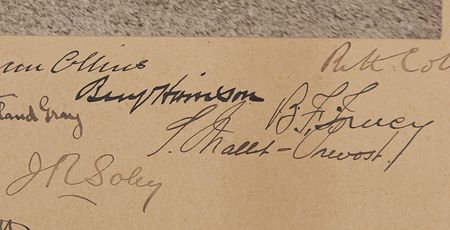 nn Collins
R. H. Coll
Benj Harrison
land Gray
B. F. Tracy
S. Mallet-Prevost
J R Soley